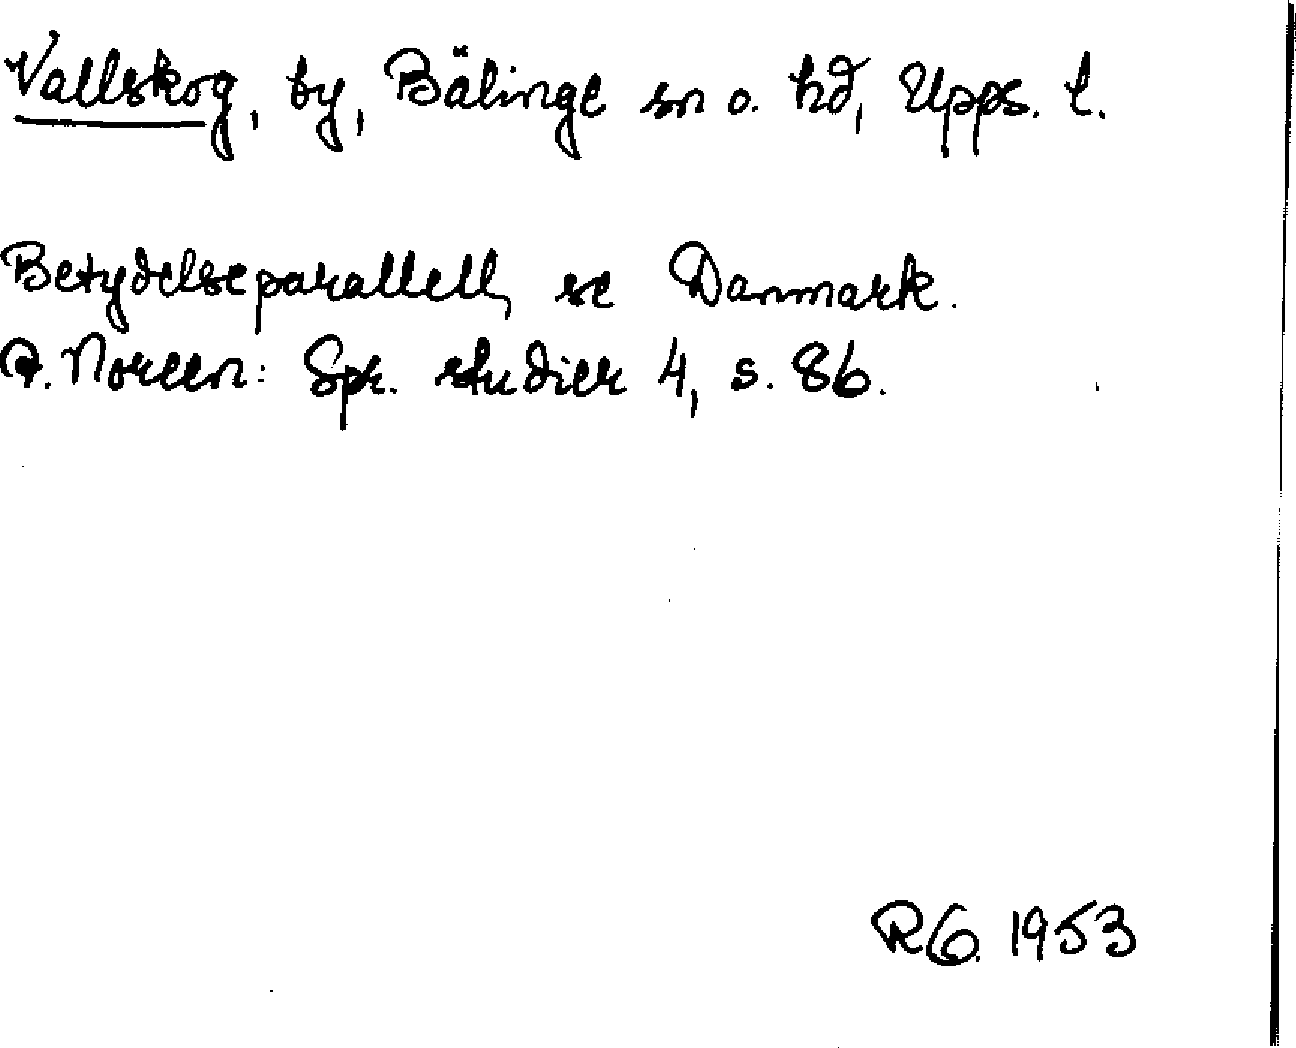 Vallskog, by, Bälinge sn o. hd, Upps. l.
Betydelseparallell, se Danmark.
A. Noreen: Spr. studier 4, s. 86.
RG. 1953